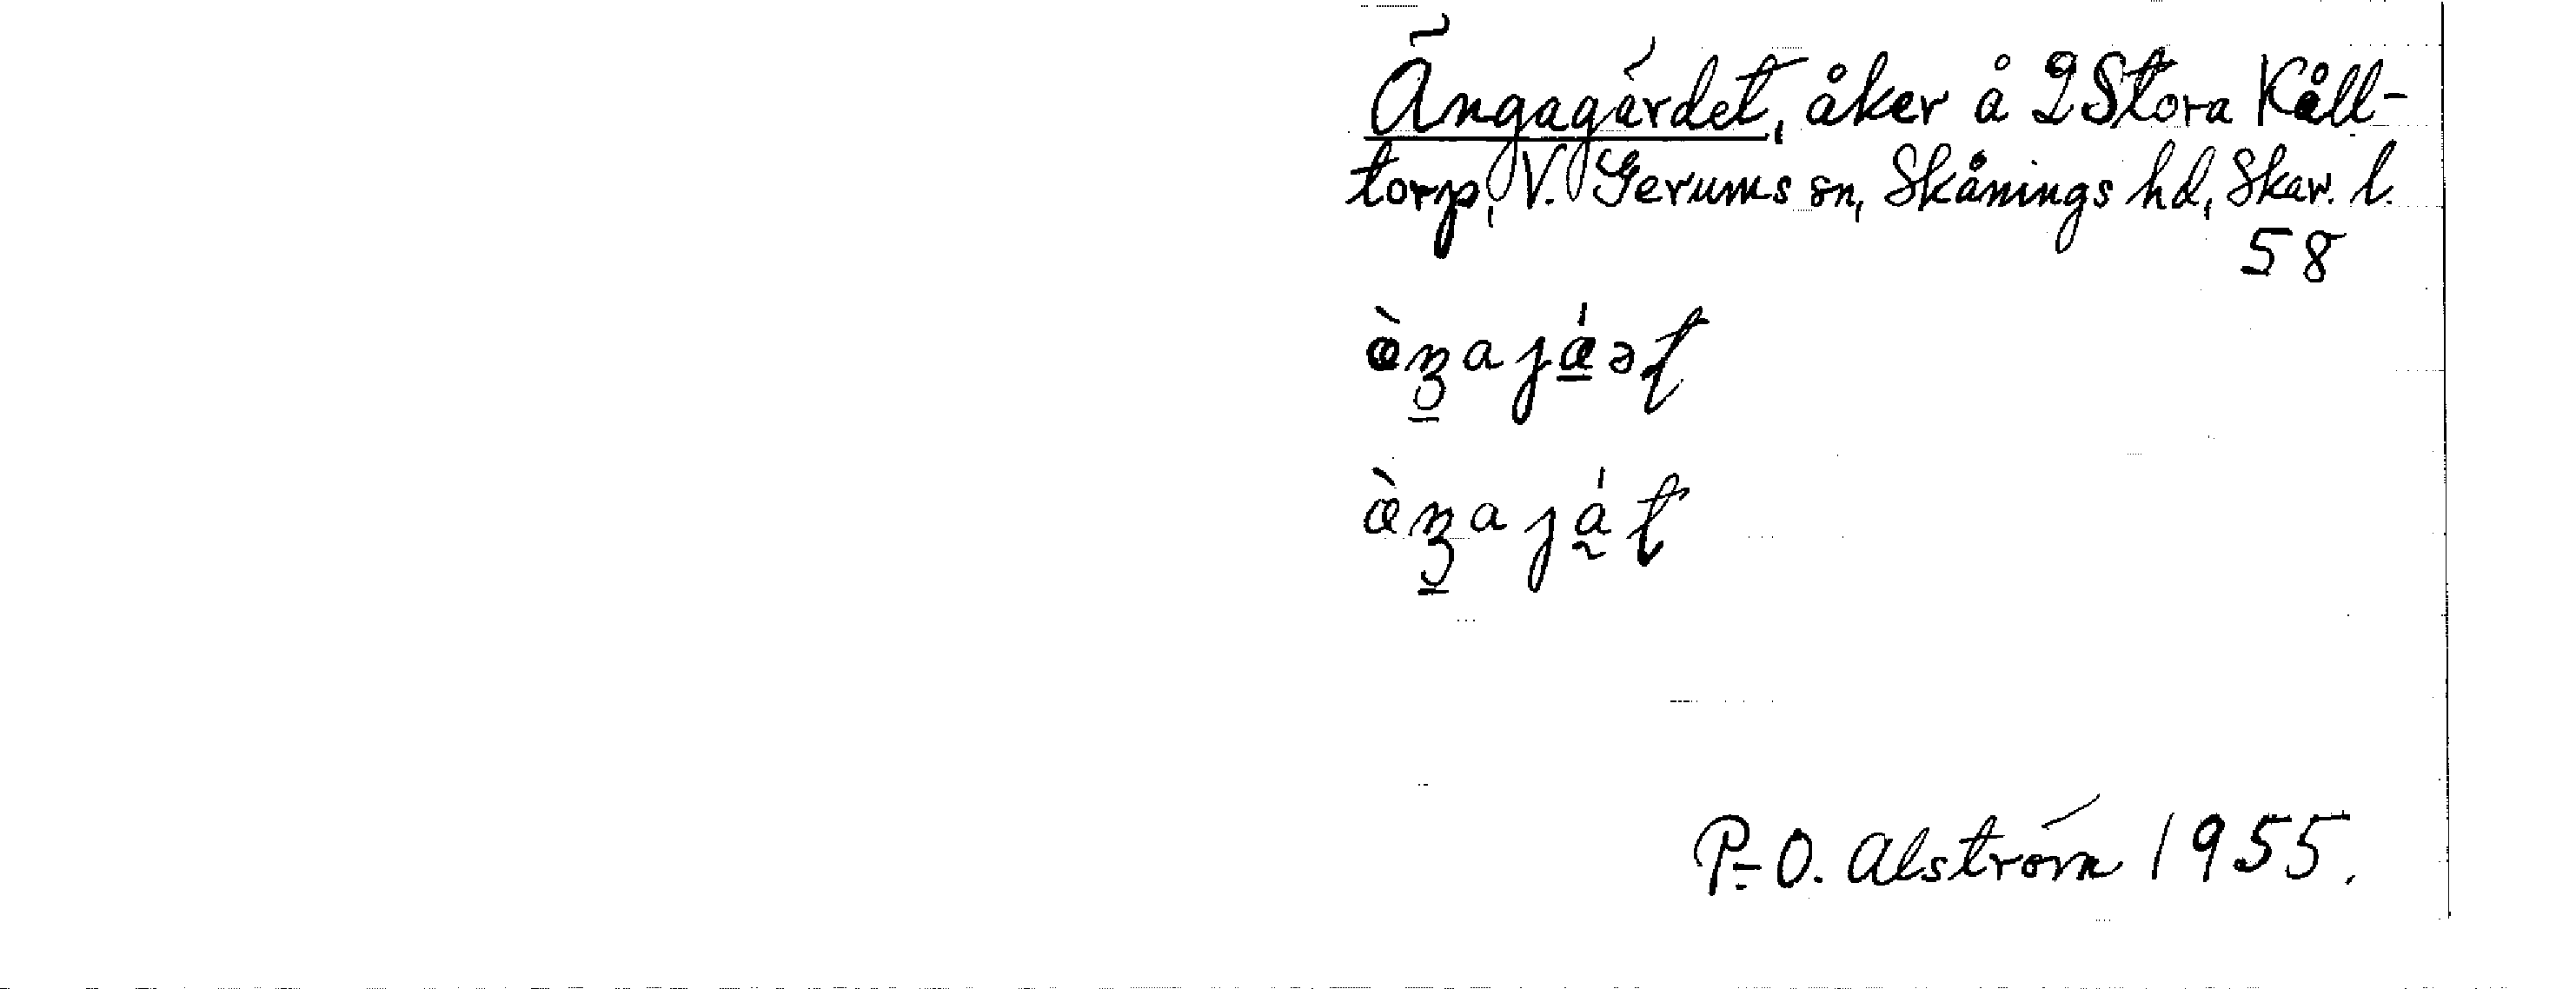 Ängagärdet, åker å 2 Stora Kåll-
torp, V. Gerums sn, Skånings hd, Skar. l.
58
P.-O. Alström 1955.